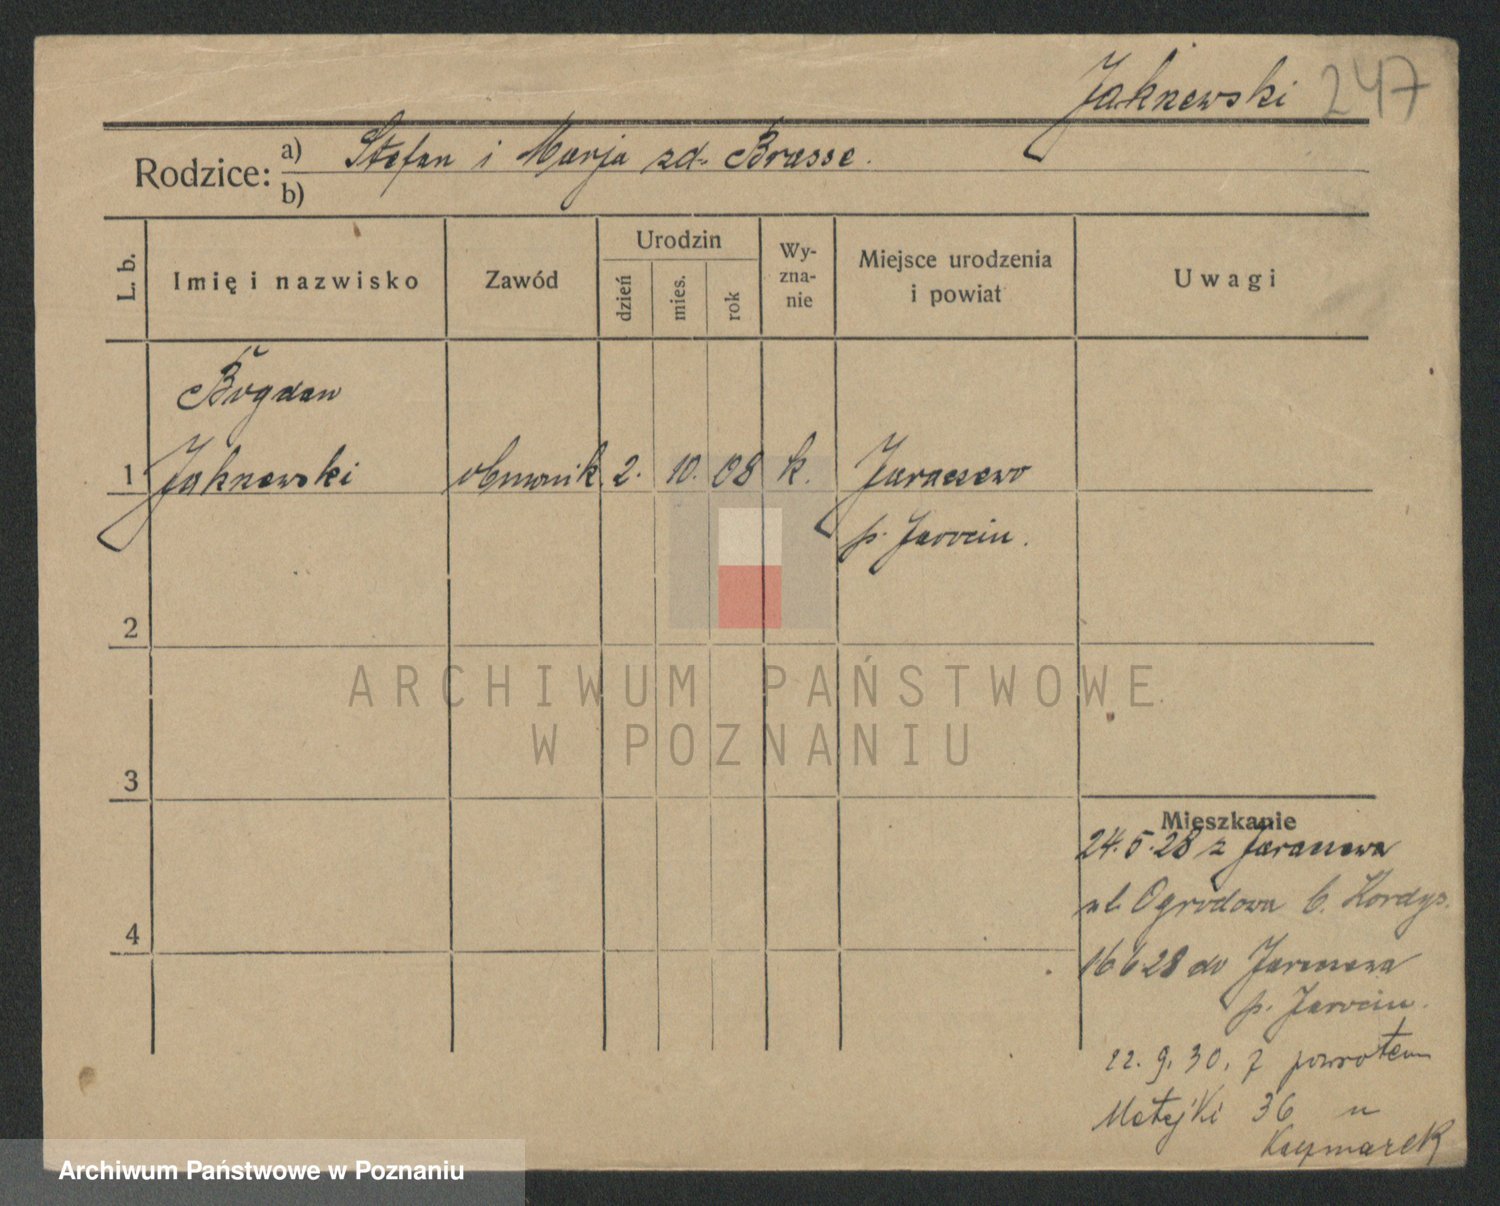 Jaknewski 247
Rodzice: a) Stefan i Marja zd. Brasse.
b)
L. b.
Imię i nazwisko
Zawód
Urodzin
dzień
mies.
rok
Wy-
zna-
nie
Miejsce urodzenia
i powiat
Uwagi
Bogdan
1 Jaknewski 2. 10. 08 k. Jaraczewo
p. Jarocin.
2
3
4
Mieszkanie
24.5.28 z Jaraczewa
ul. Ogrodowa 6. Kordys.
16 6 28 do Jaraczewa
p. Jarocin.
22. 9. 30. z powrotem
Matejki 36 u
Kaczmarek
ARCHIWUM PAŃSTWOWE
W POZNANIU
Archiwum Państwowe w Poznaniu